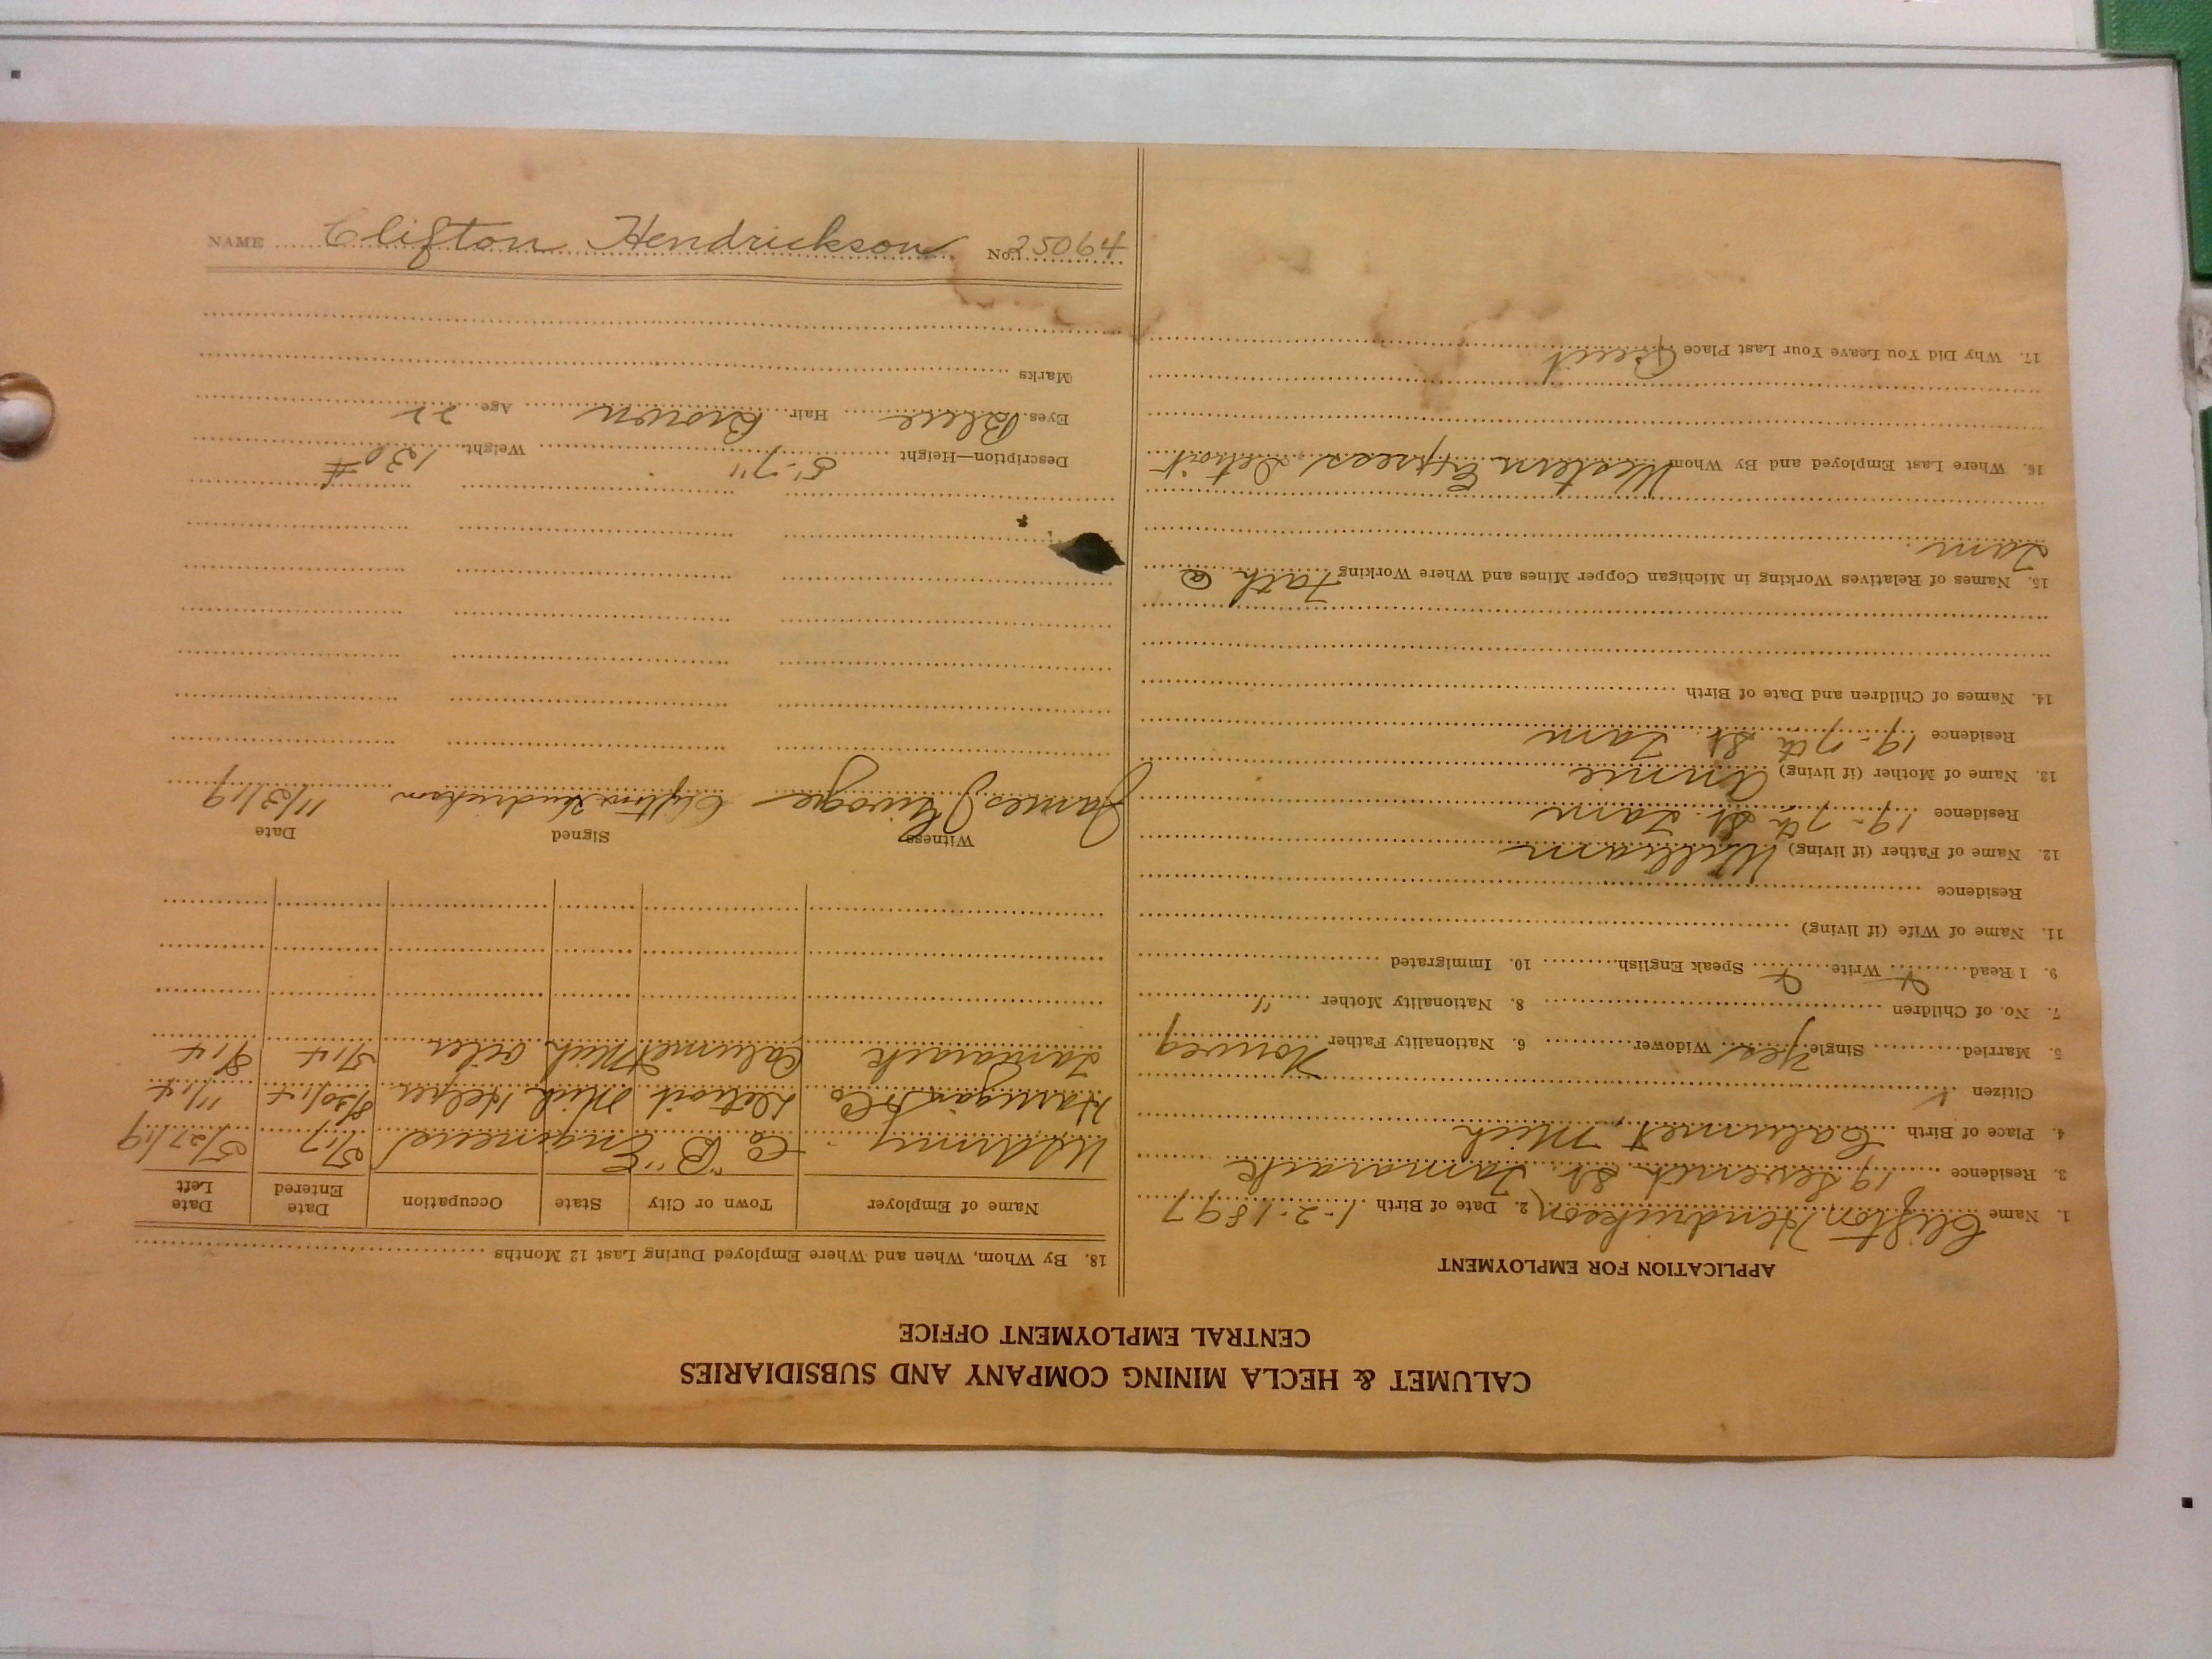 CALUMET & HECLA MINING COMPANY AND SUBSIDIARIES
CENTRAL EMPLOYMENT OFFICE
APPLICATION FOR EMPLOYMENT
1. Name Clifton Hendrickson 2. Date of Birth 1-2-1897
3. Residence 19 Seventh St. Tamarack
4. Place of Birth Calumet, Mich
Citizen
5. Married Single Yes Widower 6. Nationality Father Norweg
7. No. of Children 8. Nationality Mother "
9. I Read Write Speak English 10. Immigrated
11. Name of Wife (if living)
Residence
12. Name of Father (if living) William
Residence 19-7th St. Tam
13. Name of Mother (if living) Annie
Residence 19-7th St. Tam
14. Names of Children and Date of Birth
15. Names of Relatives Working in Michigan Copper Mines and Where Working Fath @
Tam.
16. Where Last Employed and By Whom Western Express, Detroit
17. Why Did You Leave Your Last Place Quit
18. By Whom, When and Where Employed During Last 12 Months
Name of Employer Town or City State Occupation Date Entered Date Left
US Army Co "B" Engineers 5/17 5/27/19
& Co Detroit Mich Helper 8/20/14 11/14
Tamarack Calumet Mich Oiler 5/14 8/14
Witness Signed Date
James Clifton Hendrickson 11/3/19
Description—Height 5'-7" Weight 130 #
Eyes Blue Hair Brown Age 22
Marks
NAME Clifton Hendrickson No. 25064